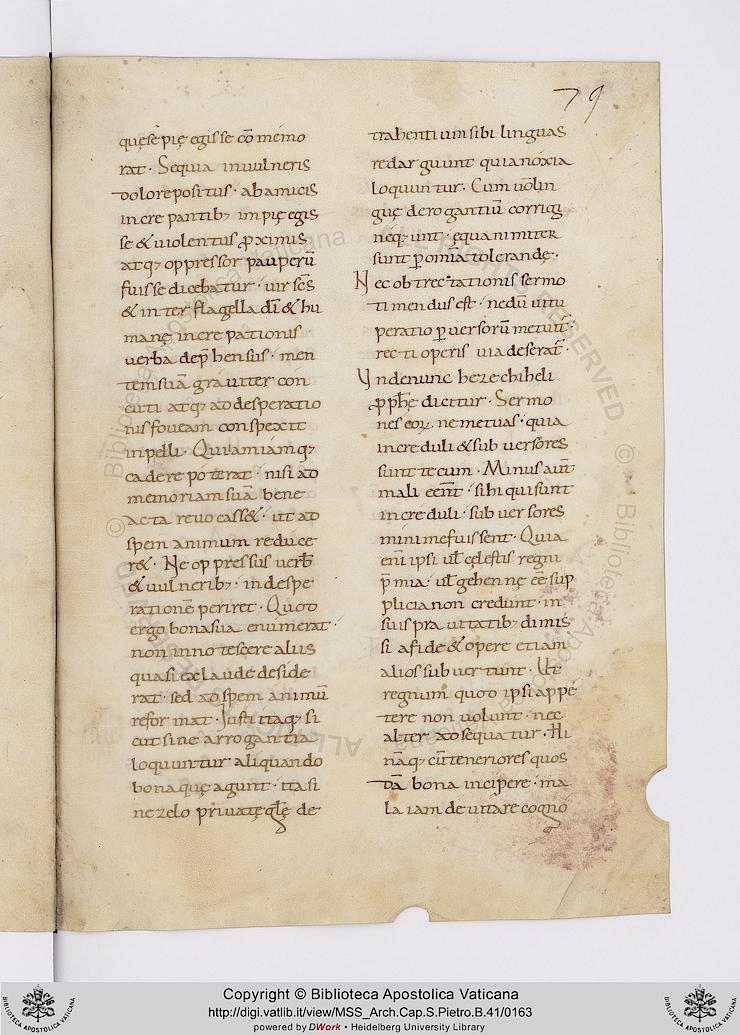 79
quęse pię egisse cōmemo
rat · Sequia inuulneris
dolore positus · abamicis
increpantib; impię egis
se & uiolentus ꝓximis
atq; oppressor pauperū
fuisse dicebatur · uir scs̄
& inter flagella dī & hu
manę increpationis
uerba depͬhensus · men
tem suā grauiter con
cuti atq; ad desperatio
nis foueam conspexit
inpelli · Quiamiamq;
cadere poterat · nisi ad
memoriam suā bene
acta reuocass& · ut ad
spem animum reduce
r& · Ne oppressus uerb̄
& uulnerib; · in despe
rationē periret · Quod
ergo bona sua enumerat ·
non innotescere aliis
quasi ex laude deside
rat · sed ad spem animū
reformat · Iusti itaq; si
cut sine arrogantia
loquuntur aliquando
bona quę agunt · ita si
ne zelo priuatę glę̄ de
trahentium sibi linguas
redarguunt quia noxia
loquuntur · Cum uō lin
guę derogantiū corrigi
neq; unt · ęquanimiter
sunt ꝑ omīa tolerandę ·
Nec obtrectationis sermo
timendus est · nedū uitu
peratio ꝑuersorū metuit̄ ·
recti operis uia deserat̄ ·
Unde nunc hezechiheli
ꝓph̄ę dicitur · Sermo
nes eoꝝ ne metuas · quia
increduli & subuersores
sunt tecum · Minus aut̄
mali eēnt · sibi qui sunt
increduli · subuersores
minime fuissent · Quia
eni ipsi ul̄ cęlestis regni
p̄mia · ul̄ gehennę eē sup
plicia non credunt · in
suis prauitatib; dimis
si a fide & opere etiam
alios subuertunt · Ut
regnum quod ipsi appe
tere non uolunt · nec
alter adsequatur · Illi
nāq; cū teneriores quos
dā bona incipere · ma
la iam deuitare cogno
Copyright © Biblioteca Apostolica Vaticana
http://digi.vatlib.it/view/MSS_Arch.Cap.S.Pietro.B.41/0163
powered by DWork • Heidelberg University Library
BIBLIOTECA APOSTOLICA VATICANA
BIBLIOTECA APOSTOLICA VATICANA